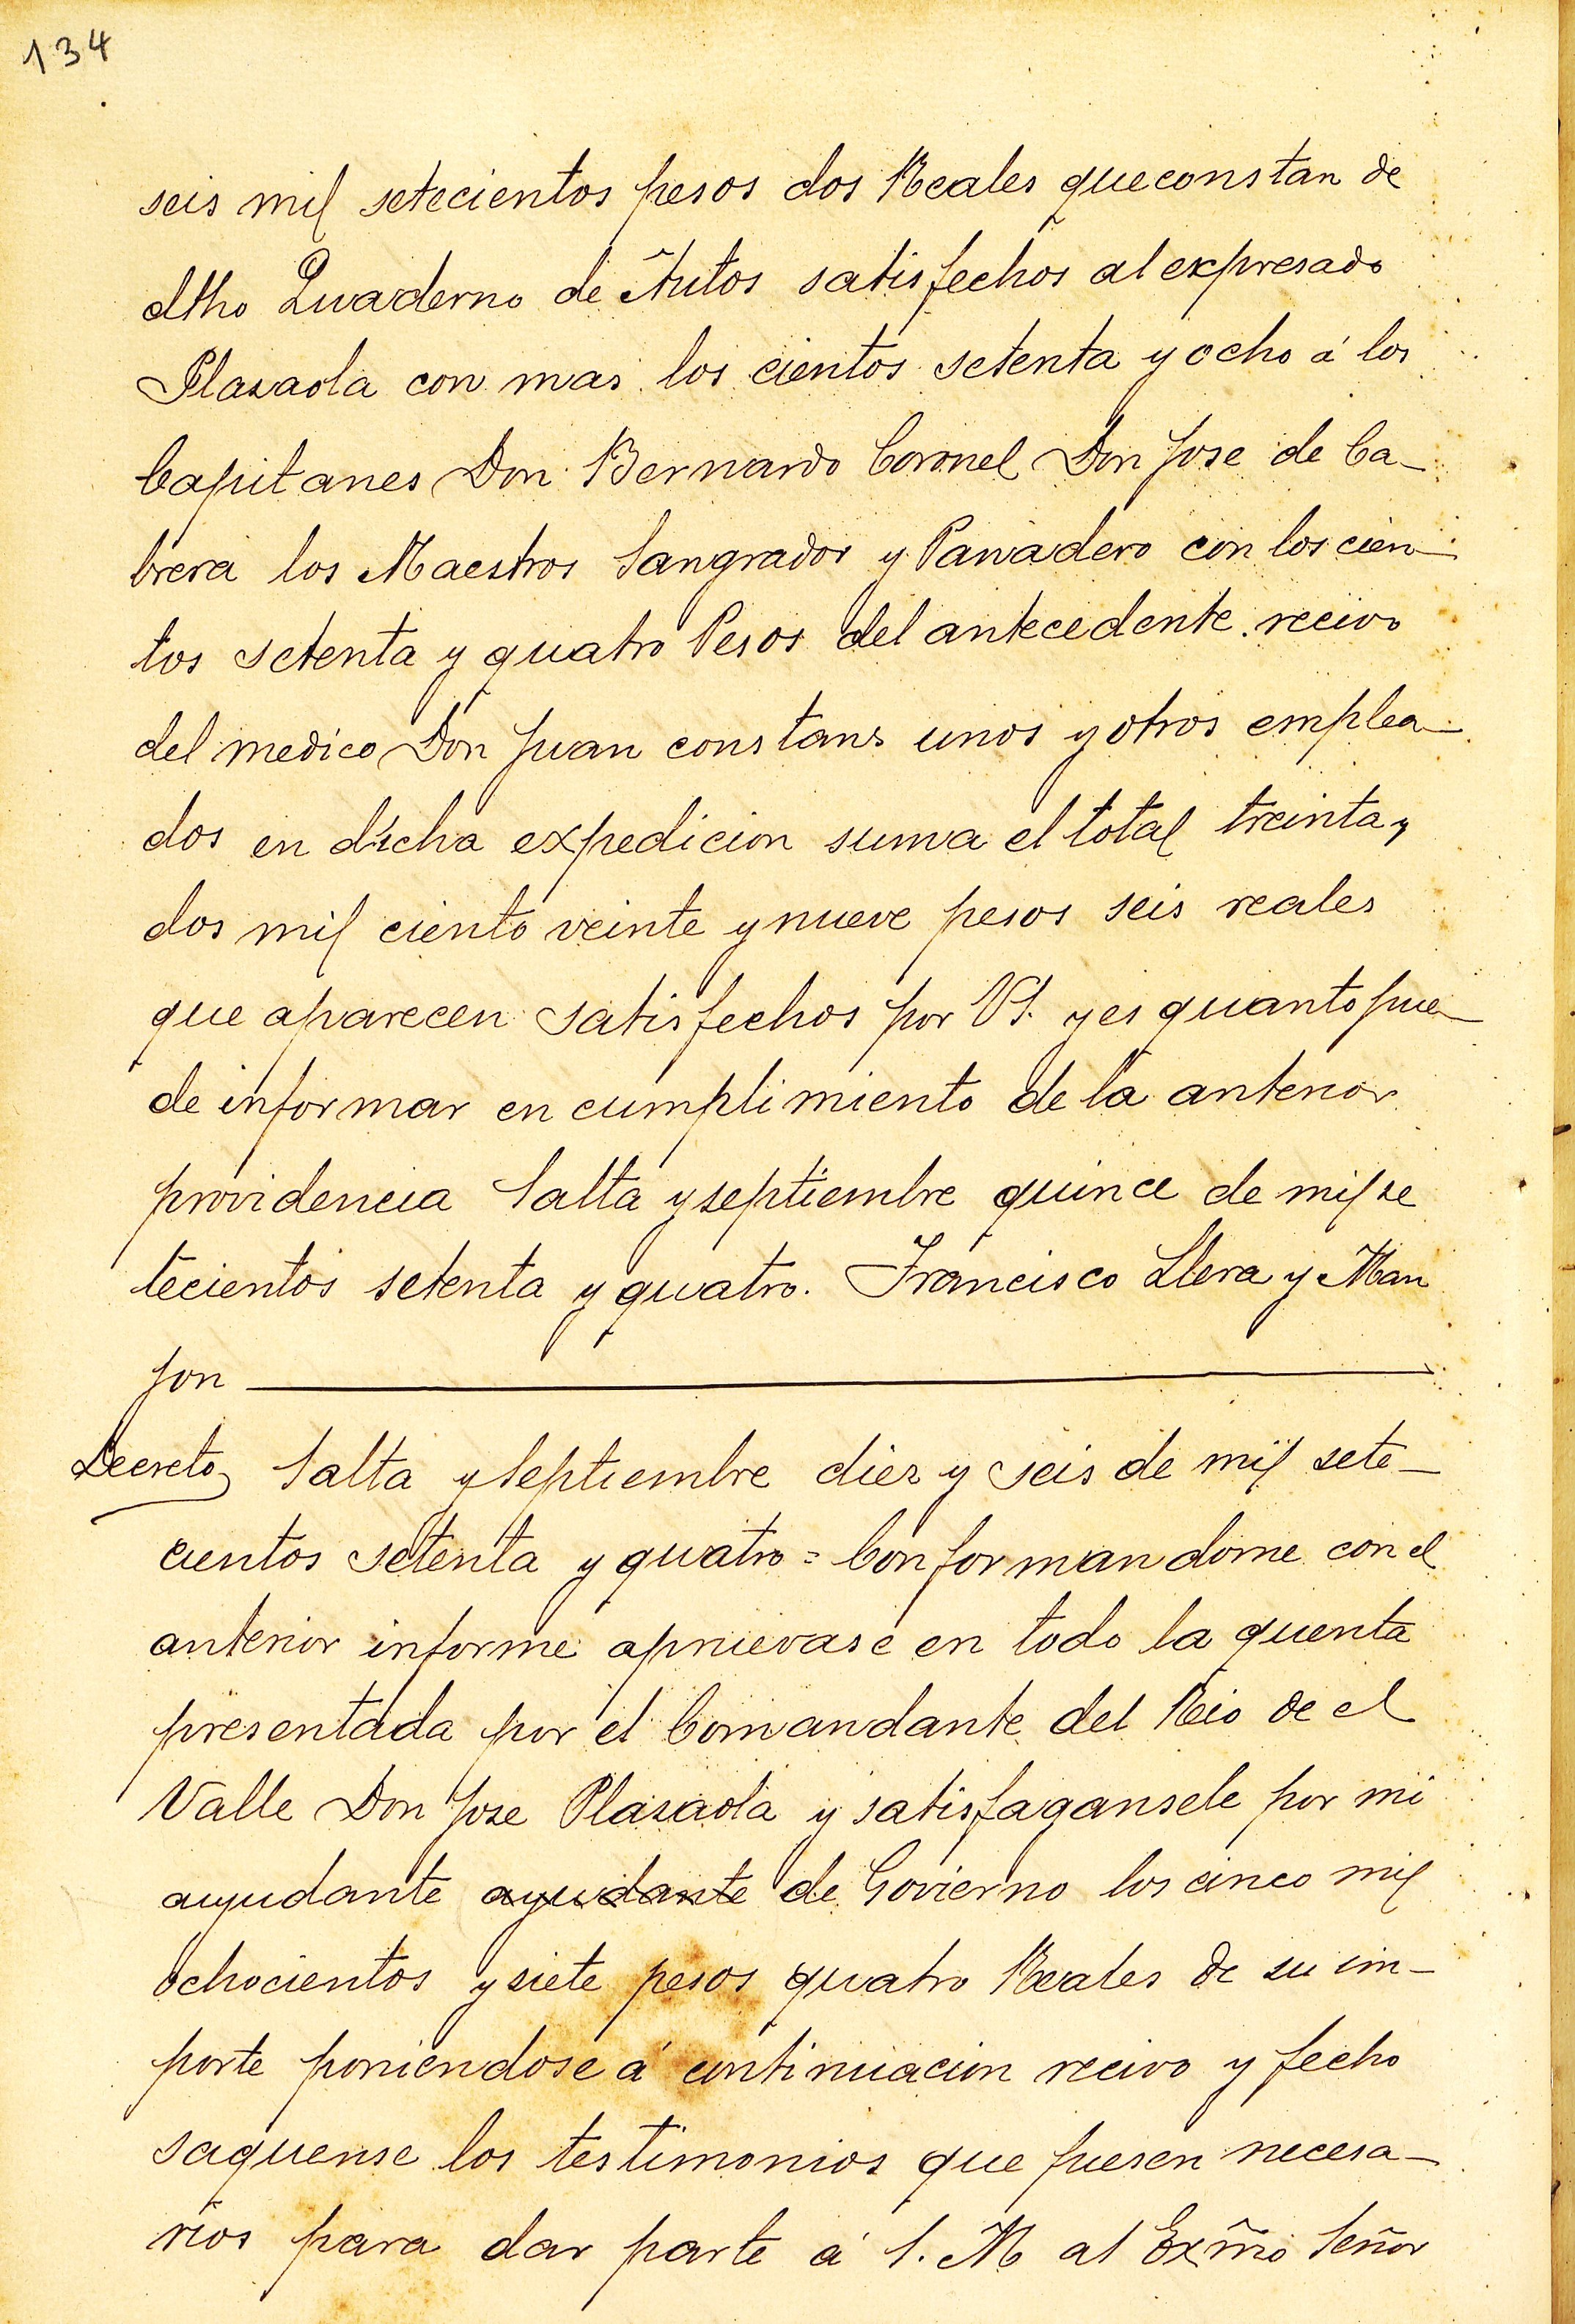 134
seis mil setecientos pesos dos Reales que constan de
dtho Quaderno de Autos satisfechos al expresado
Plazaola con mas los cientos setenta y ocho á los
Capitanes Don Bernardo Coronel Don Jose de Ca-
brera los Maestros Sangrador y Panadero con los cien-
tos setenta y quatro Pesos del antecedente recivo
del medico Don Juan constans unos y otros emplea-
dos en dicha expedicion suma el total treinta y
dos mil ciento veinte y nueve pesos seis reales
que aparecen satisfechos por VS. y es quanto pue-
de informar en cumplimiento de la anterior
providencia Salta y septiembre quince de mil se
tecientos setenta y quatro. Francisco Llera y Man
jon
Decreto Salta y Septiembre diez y seis de mil sete-
cientos setenta y quatro = Conformandome con el
anterior informe apruevase en todo la quenta
presentada por el Comandante del Reio de el
Valle Don Jose Plazaola y satisfagansele por mi
ayudante ayudante de Govierno los cinco mil
ochocientos y siete pesos quatro Reales de su im-
porte poniendose á continuacion recivo y fecho
saquense los testimonios que fuesen necesa-
rios para dar parte á S. M al Exm̃o Señor